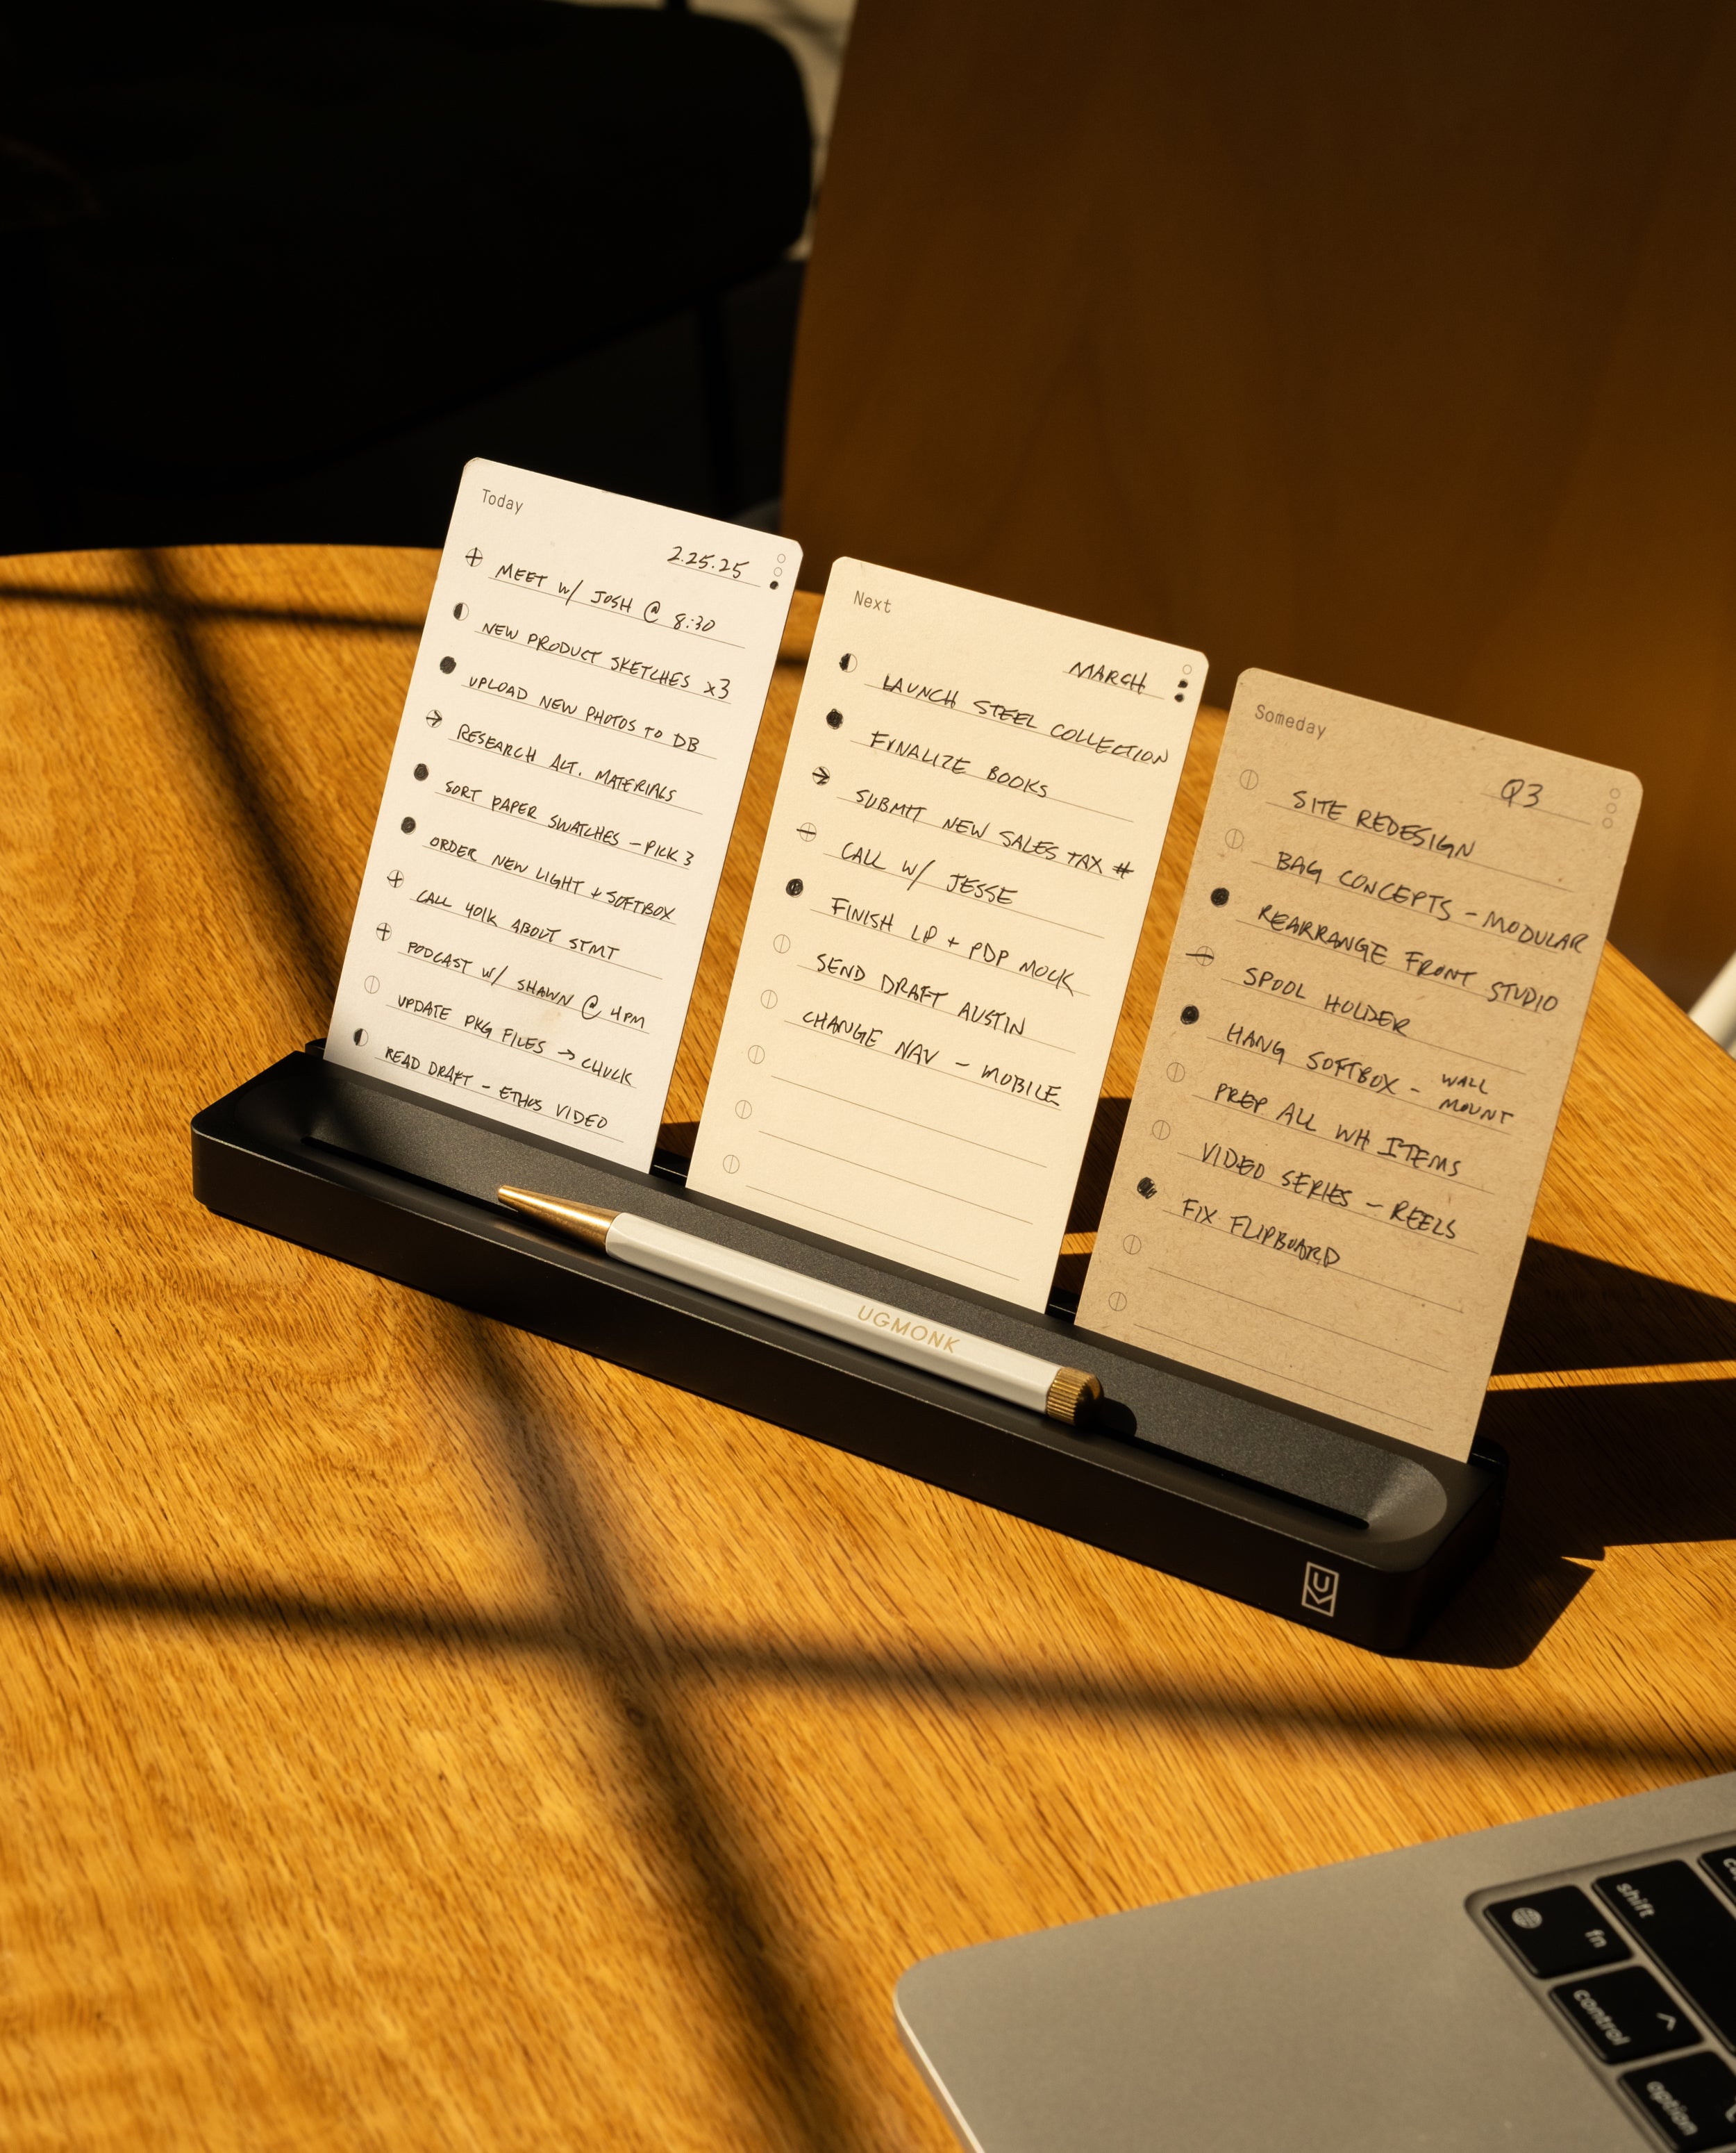 Today
2.25.25
MEET W/ JOSH @ 8:30
NEW PRODUCT SKETCHES x3
UPLOAD NEW PHOTOS TO DB
RESEARCH ALT. MATERIALS
SORT PAPER SWATCHES - PICK 3
ORDER NEW LIGHT + SOFTBOX
CALL 401K ABOUT STMT
PODCAST W/ SHAWN @ 4PM
UPDATE PKG FILES → CHUCK
READ DRAFT - ETHOS VIDEO
Next
MARCH
LAUNCH STEEL COLLECTION
FINALIZE BOOKS
SUBMIT NEW SALES TAX #
CALL W/ JESSE
FINISH LP + PDP MOCK
SEND DRAFT AUSTIN
CHANGE NAV - MOBILE
Someday
Q3
SITE REDESIGN
BAG CONCEPTS - MODULAR
REARRANGE FRONT STUDIO
SPOOL HOLDER
HANG SOFTBOX - WALL MOUNT
PREP ALL WH ITEMS
VIDEO SERIES - REELS
FIX FLIPBOARD
UGMONK
UM
shift
fn
control
option